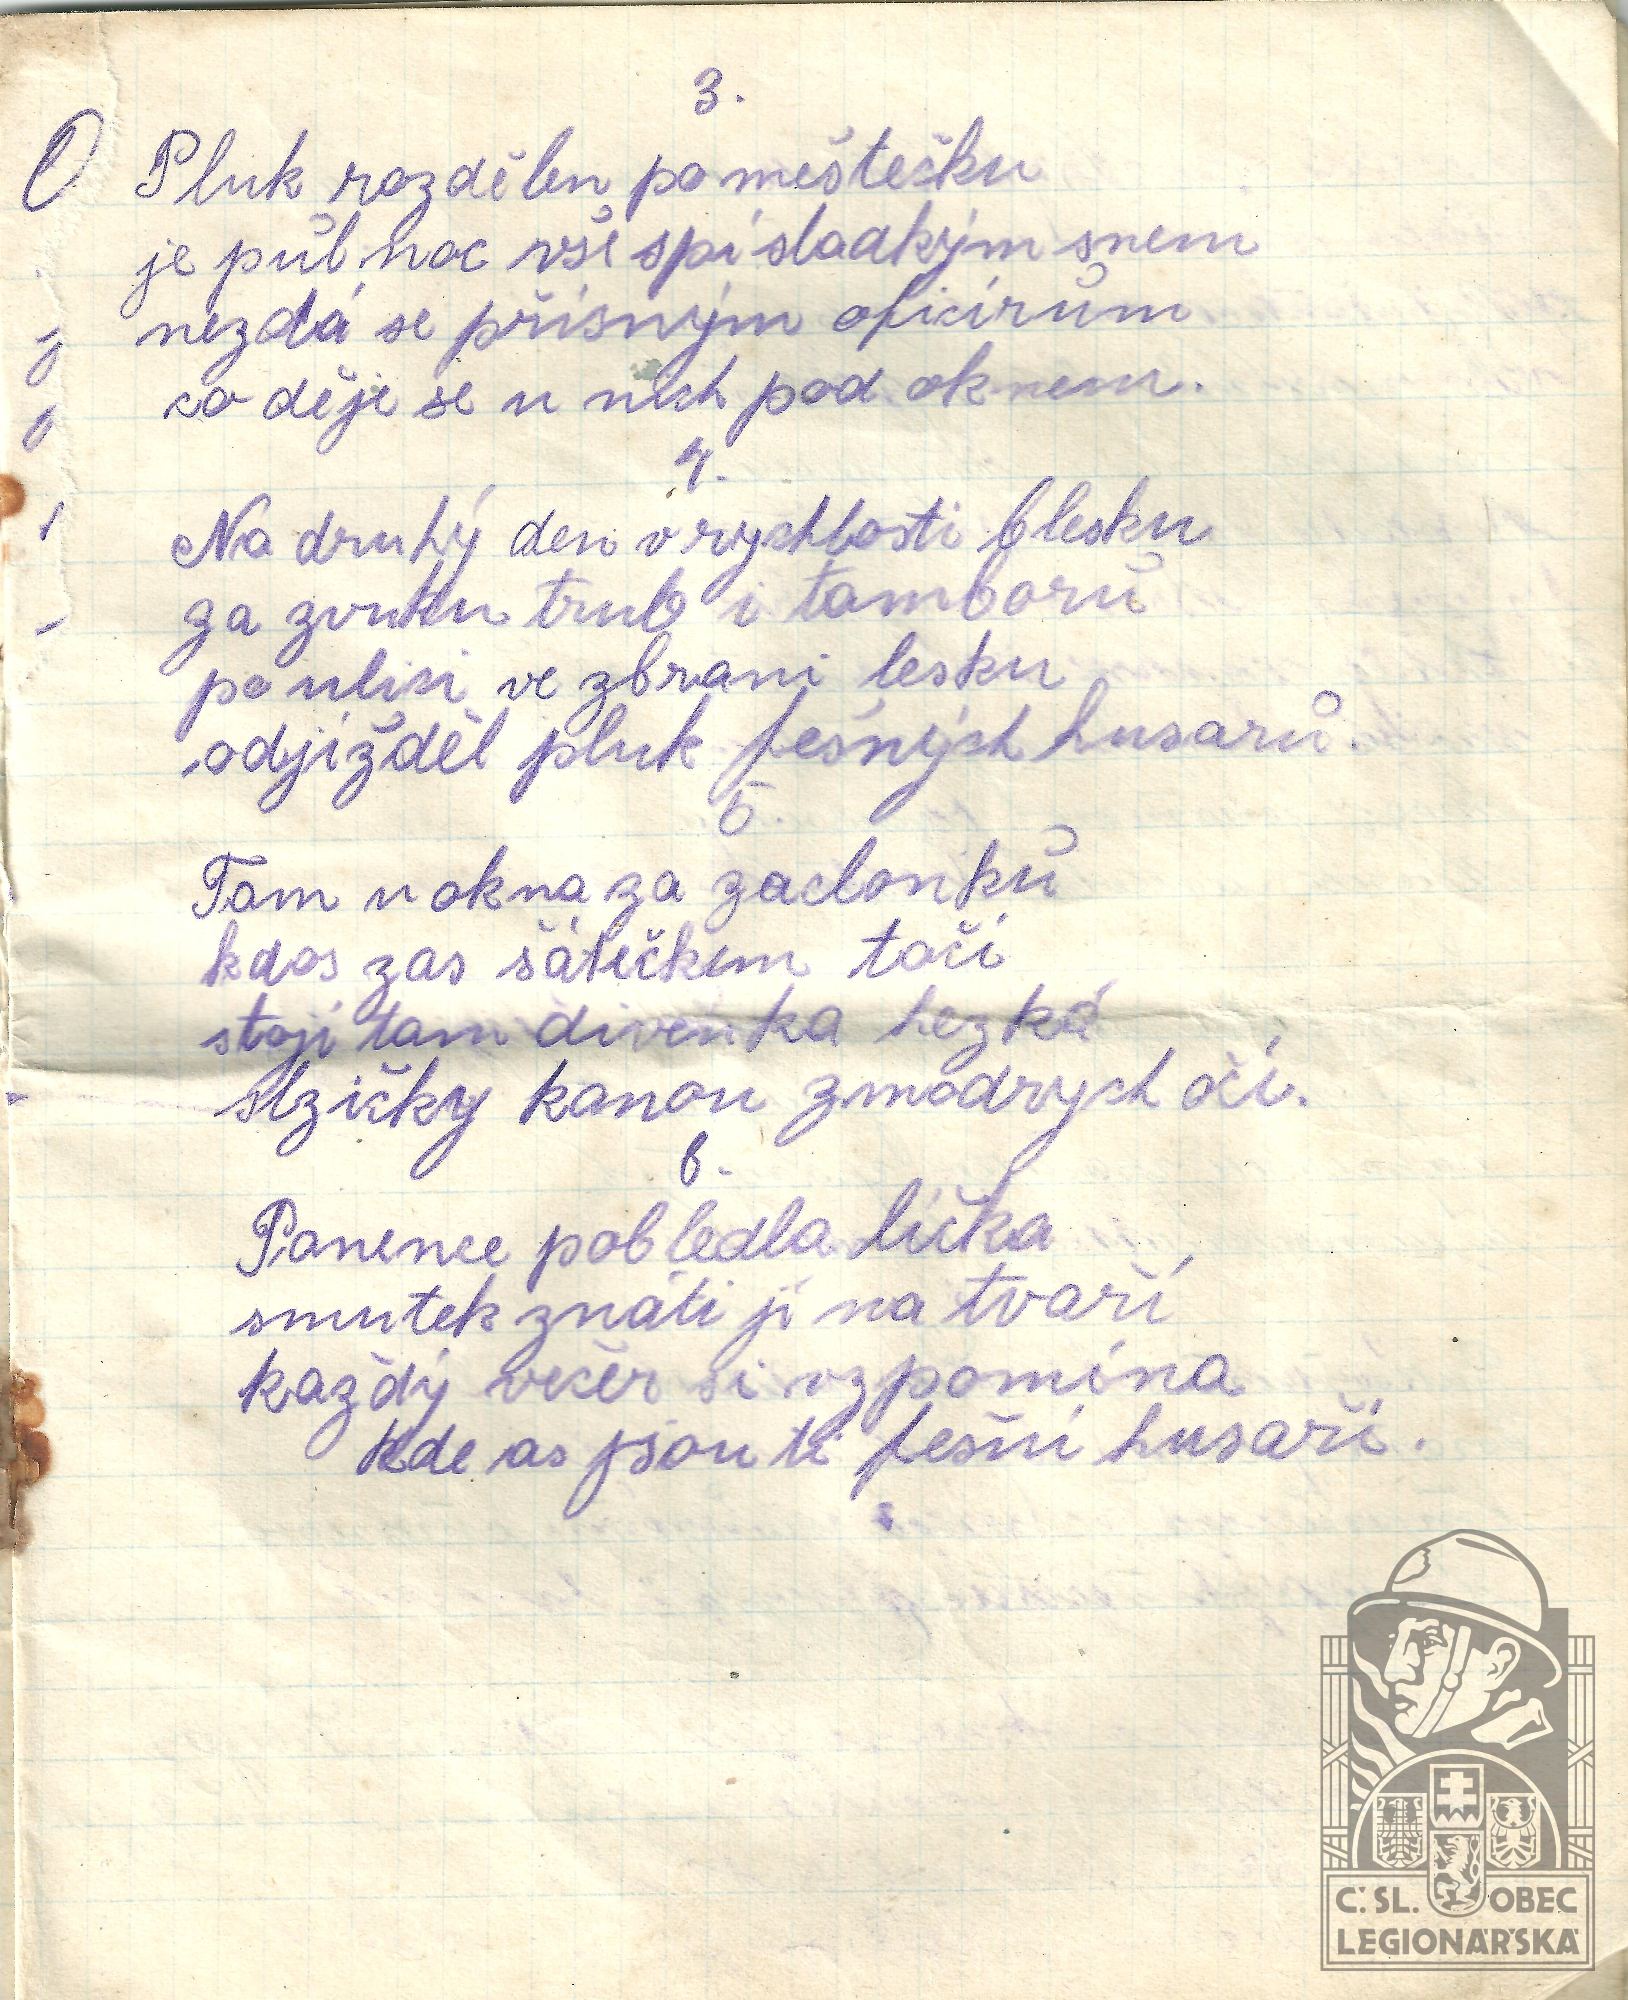 3.
Pluk rozdělen po měštečku
je půl noc vše spí sladkým snem
nezdá se přísným oficírům
co děje se u nich pod oknem.
4.
Na druhý den v rychlosti blesku
za zvuku trub i tamborů
po ulici ve zbrani lesku
odjížděl pluk fešných husarů.
5.
Tam u okna za zaclonků
kdos zas šátečkem točí
stojí tam divenka hezká
slzičky kanou z modrych očí.
6.
Panence pobledla líčka
smutek znáti jí na tvaří
každý večer si vzpomíná
kde as jsou ti fešní husaři.
Č. SL. OBEC
LEGIONÁŘSKÁ